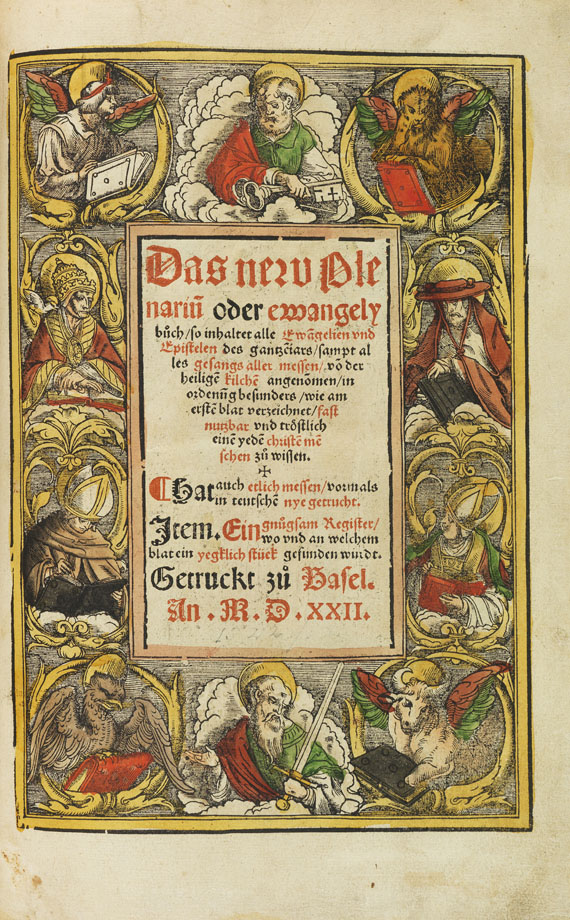 Das neru Ple
nariū oder ewangely
bůch/so inhaltet alle Ewāgelien vnd
Epistelen des gantzēiars/sampt al
les gesangs aller messen/vō der
heiligē kilchē angenomen/in
ordenūg besunders/wie am
erstē blat verzeichnet/fast
nutzbar vnd tröstlich
einē yedē christē mē
schen zů wissen.
Hat auch etlich messen/vormals
in teutschē nye getruckt.
Item. Ein gnůgsam Register/
wo vnd an welchem
blat ein yegklich stück gefunden wurdt.
Getruckt zů Basel.
An. M. D. XXII.